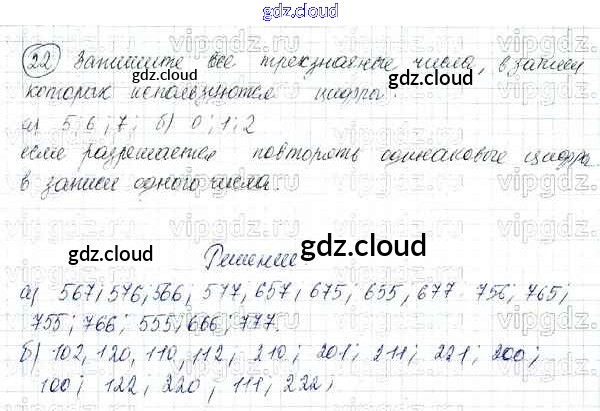 gdz.cloud
22 Запишите все трехзначные числа, в записи
которых используются цифры:
а) 5; 6; 7; б) 0; 1; 2
если разрешается повторять одинаковые цифры
в записи одного числа.
gdz.cloud
gdz.cloud gdz.cloud
Решение
а) 567; 576; 566; 577; 657; 675; 655; 677 756; 765;
755; 766; 555; 666; 777.
б) 102, 120, 110, 112; 210; 201; 211; 221; 200;
100; 122; 220; 111; 222;
gdz.cloud gdz.cloud